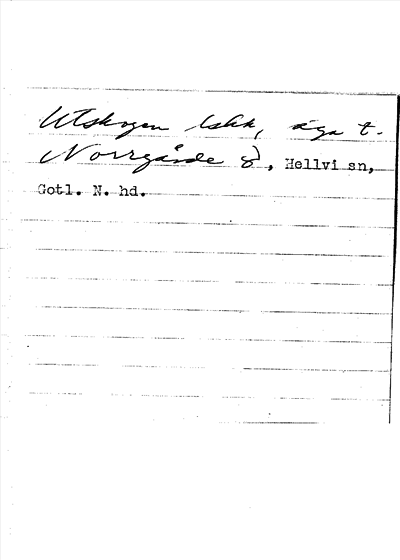 Utskogen lshk, äga t.
Norrgårde 8, Hellvi sn,
Gotl. N. hd.